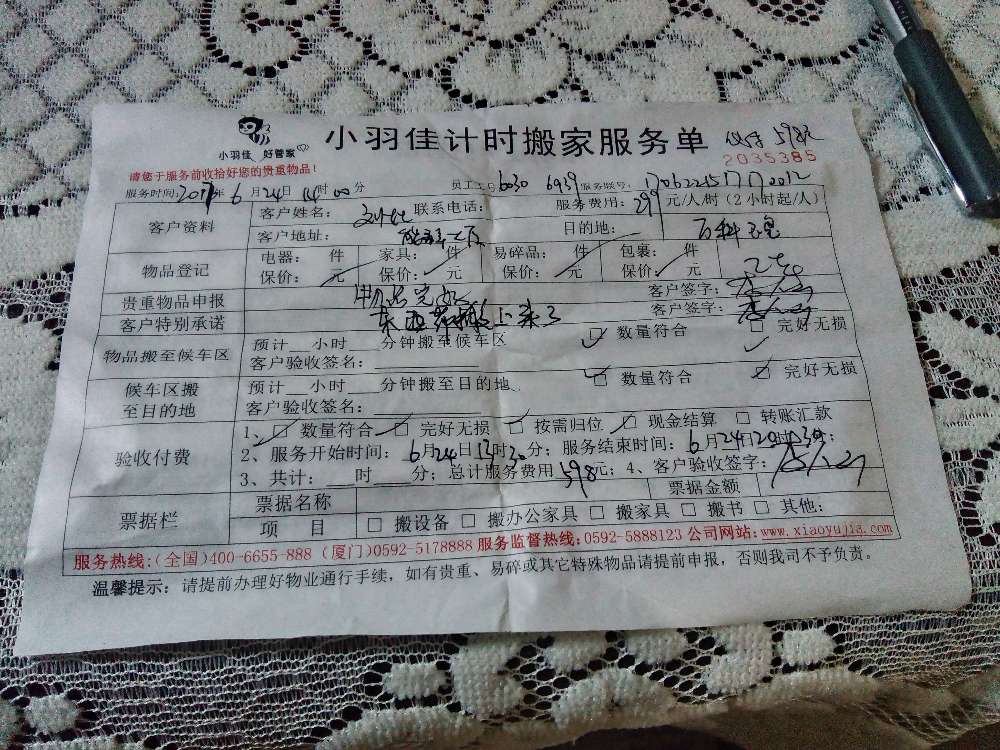 小羽佳 好管家
小羽佳计时搬家服务单
2035385
请您于服务前收拾好您的贵重物品!
服务时间:2017年6月24日14时00分 员工工号6030 6939 服务联号:
客户资料 客户姓名: 联系电话: 服务费用:299元/人/时(2小时起/人)
客户地址: 目的地:
物品登记 电器: 件 家具: 件 易碎品: 件 包裹: 件
保价: 元 保价: 元 保价: 元 保价: 元
贵重物品申报 物品完好 客户签字:
客户特别承诺 东西都搬上来了 客户签字:
物品搬至候车区 预计 小时 分钟搬至候车区 数量符合 完好无损
客户验收签名:
候车区搬至目的地 预计 小时 分钟搬至目的地 数量符合 完好无损
客户验收签名:
验收付费 1、 数量符合 完好无损 按需归位 现金结算 转账汇款
2、服务开始时间: 6月24日13时30分; 服务结束时间: 6月24日20时30分;
3、共计: 时 分; 总计服务费用598元; 4、客户验收签字:
票据栏 票据名称 票据金额
项 目 搬设备 搬办公家具 搬家具 搬书 其他:
服务热线:(全国)400-6655-888 (厦门)0592-5178888 服务监督热线:0592-5888123 公司网站:www.xiaoyujia.com
温馨提示: 请提前办理好物业通行手续,如有贵重、易碎或其它特殊物品请提前申报,否则我司不予负责。